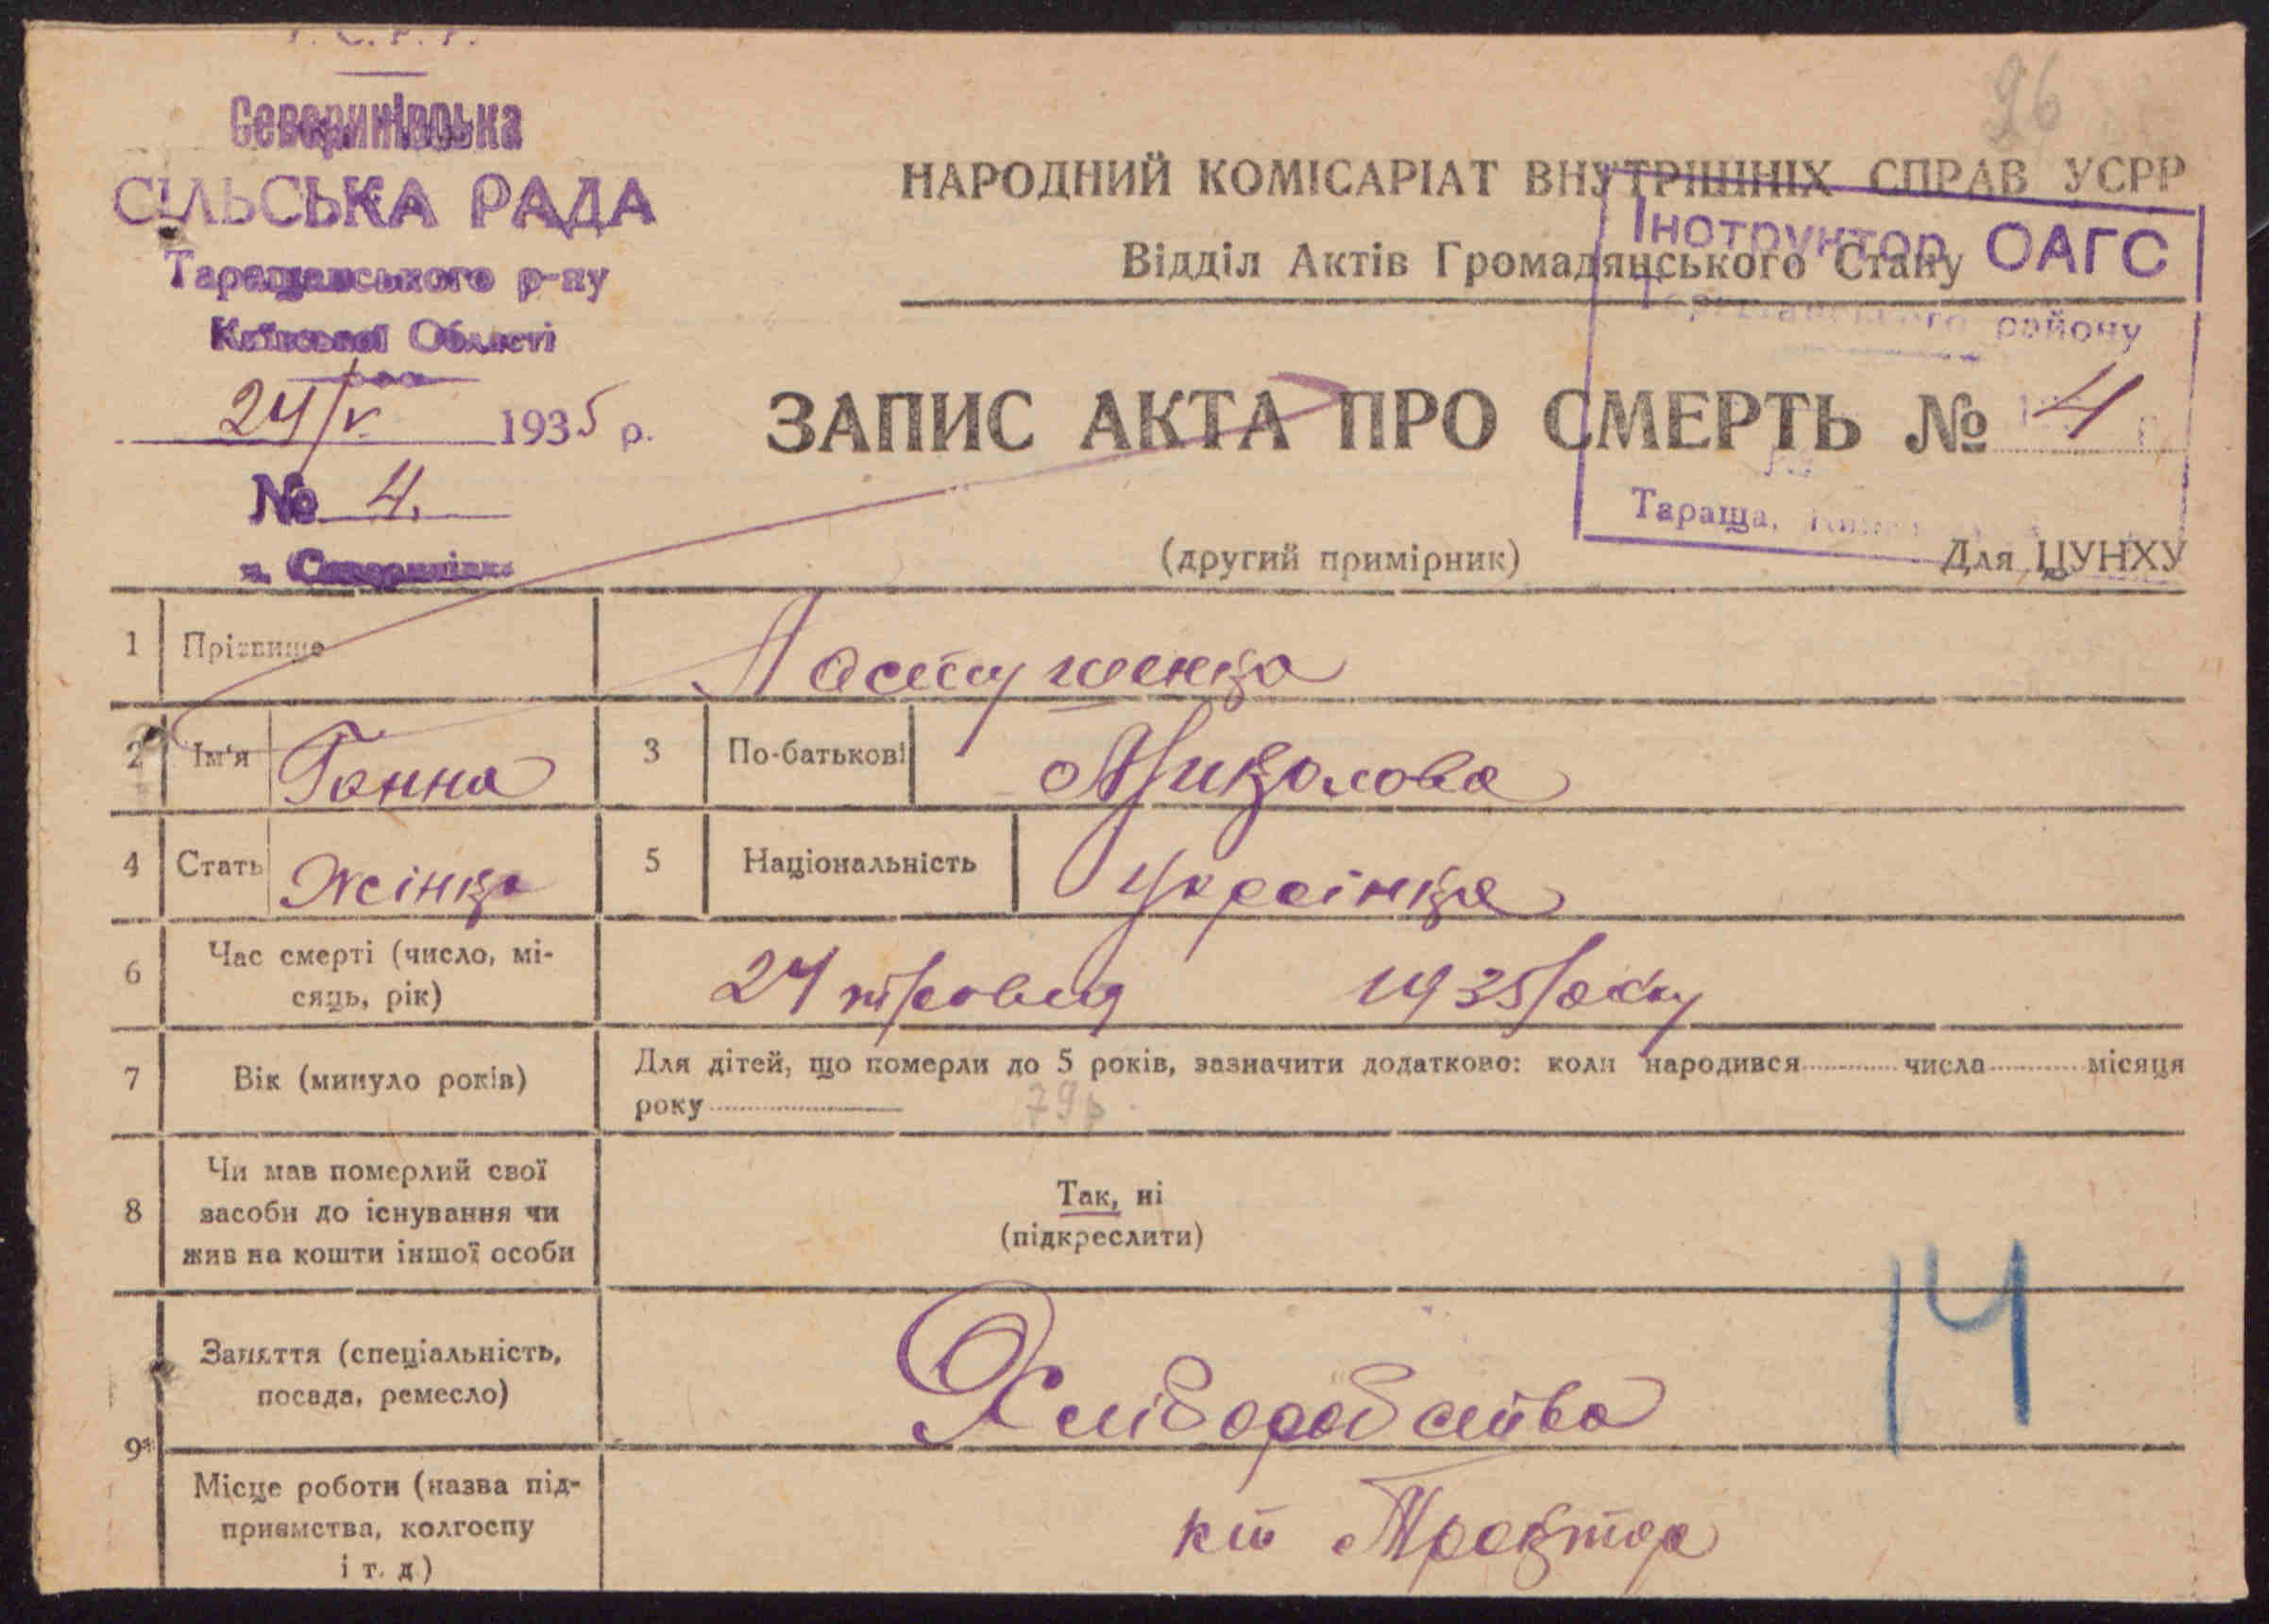 96
Северинівська
СІЛЬСЬКА РАДА
Таращанського р-ну
Київської Области
24/V 1935 р.
№ 4.
с. Северинівка
НАРОДНИЙ КОМІСАРІАТ ВНУТРІШНІХ СПРАВ УСРР
Відділ Актів Громадянського Стану
Інструктор ОАГС
Таращанського району
ЗАПИС АКТА ПРО СМЕРТЬ № 4
Тараща,
(другий примірник)
Для ЦУНХУ
1 Прізвище Пастушенка
2 Ім'я Ганна 3 По-батькові Миколова
4 Стать Жінка 5 Національність Українка
6 Час смерті (число, мі-
сяць, рік) 24 травня 1935 року
7 Вік (минуло років) Для дітей, що померли до 5 років, зазначити додатково: коли народився числа місяця
року 79 р
8 Чи мав померлий свої
засоби до існування чи
жив на кошти іншої особи
Так, ні
(підкреслити)
14
9 Заняття (спеціальність,
посада, ремесло) Хліборобства
Місце роботи (назва під-
приємства, колгоспу
і т. д.) кт Трактор